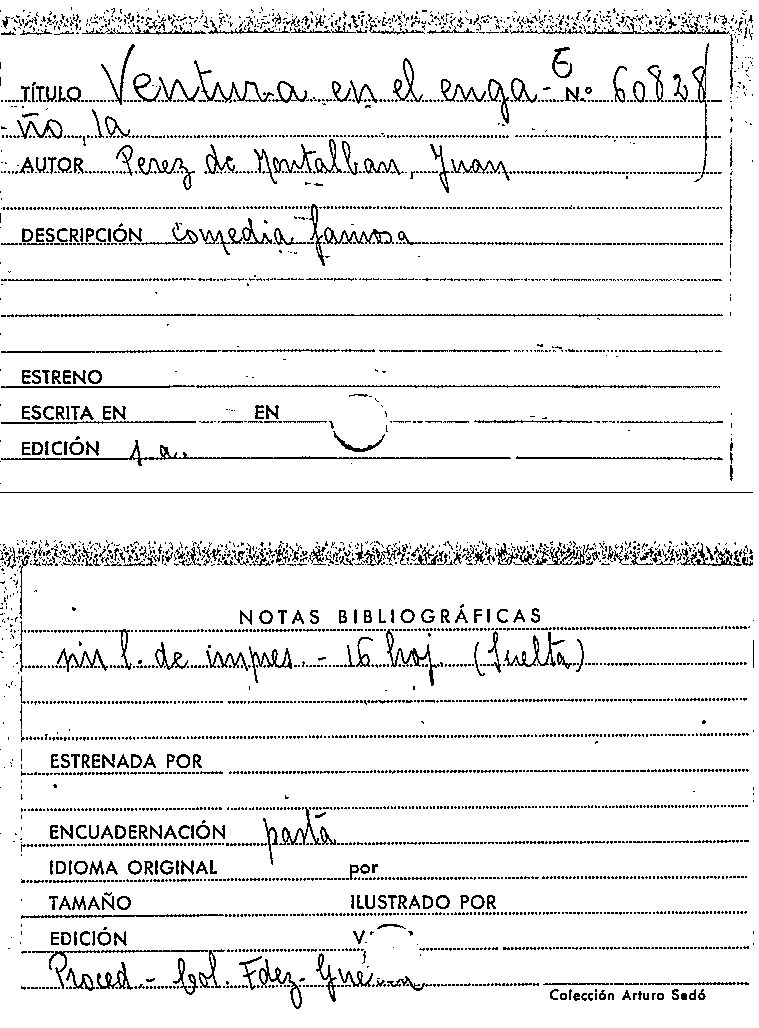 TÍTULO Ventura en el enga- 6 N.º 60828
ño, la
AUTOR Perez de Montalban, Juan
DESCRIPCIÓN Comedia famosa
ESTRENO
ESCRITA EN EN
EDICIÓN s.a.
NOTAS BIBLIOGRÁFICAS
sin l. de impres. - 16 hoj. (Suelta)
ESTRENADA POR
ENCUADERNACIÓN pasta
IDIOMA ORIGINAL por
TAMAÑO ILUSTRADO POR
EDICIÓN V.
Proced - Col. Fdez-Guerra
Colección Arturo Sedó